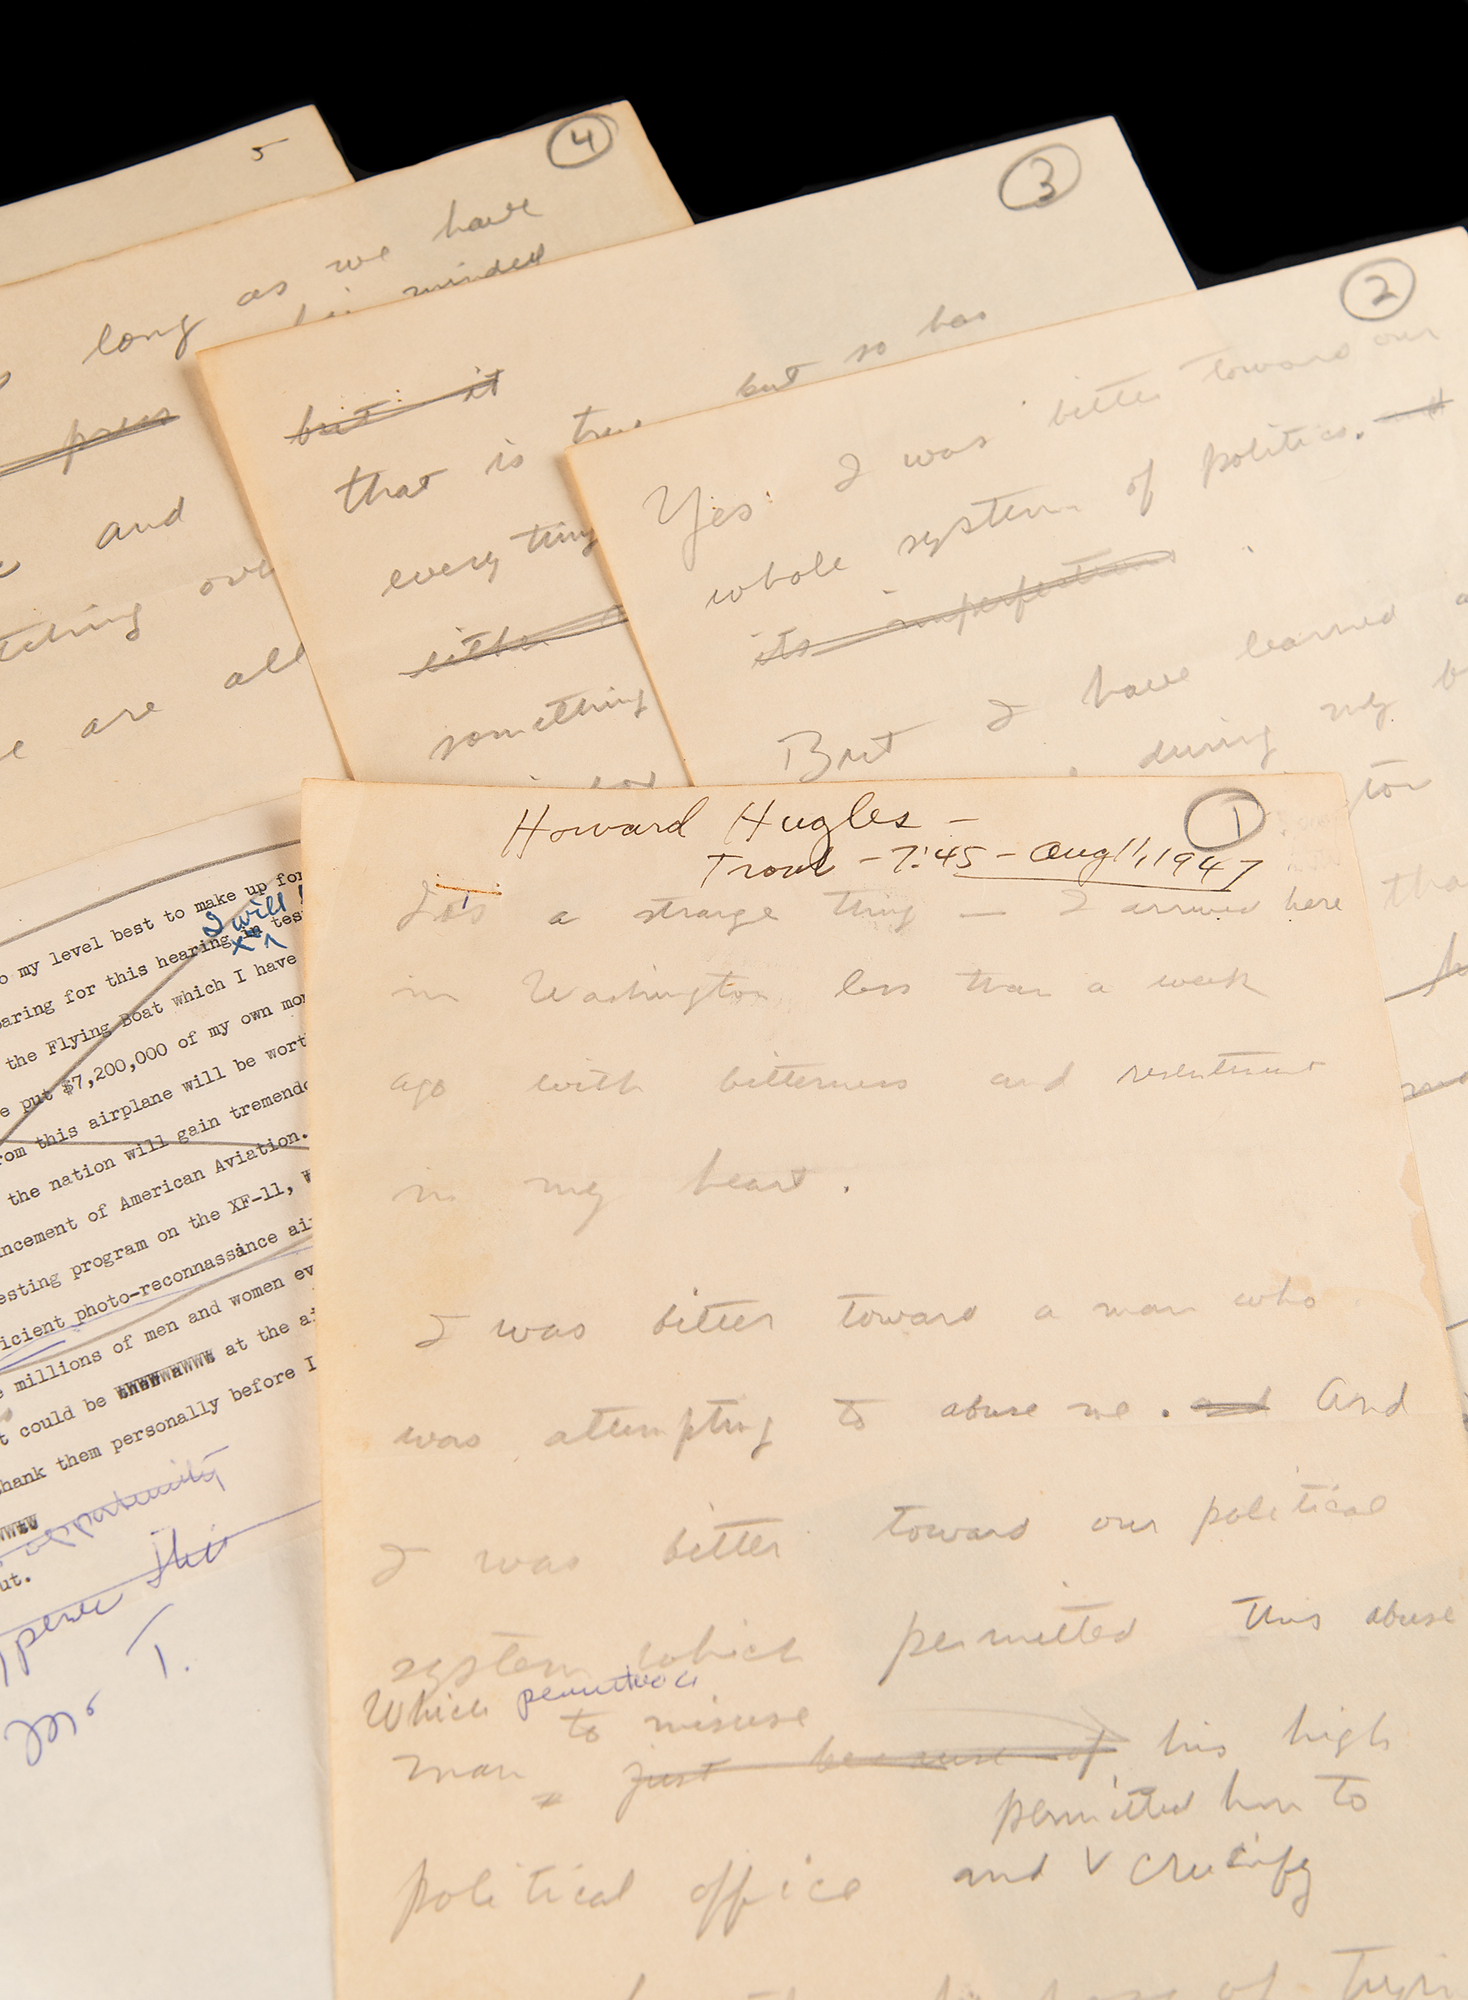 5
4
long as we have
minded
press
and
are all
3
but so has
but it
that is true
everything
something
2
Yes I was bitter toward our
whole system of politics. and
its imperfections
But I have learned
during my
1
Howard Hughes -
7:45 - Aug 11, 1947
It's a strange thing — I arrived here
in Washington less than a week
ago with bitterness and resentment
in my heart.
I was bitter toward a man who
was attempting to abuse me. and And
I was bitter toward our political
system which permitted this abuse
Which permitted a
to misuse
man just because of his high
permitted him to
political office and v crucify
o my level best to make up for
I will
aring for this hearing in tes
the Flying Boat which I have
e put $7,200,000 of my own mon
rom this airplane will be wort
the nation will gain tremendo
ncement of American Aviation.
esting program on the XF-11, w
icient photo-reconnassance air
e millions of men and women ev
t could be at the ai
hank them personally before I
opportunity
ut.
this
T.